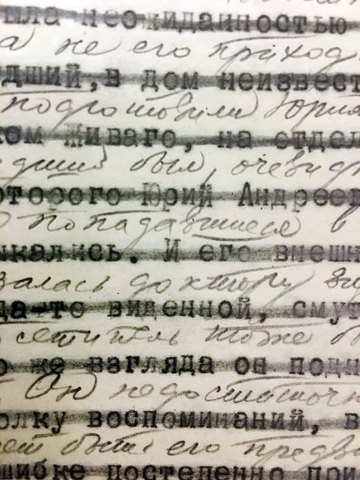 ыла неожиданностью
а не его приход
дший, в дом неизвест
подготовили Юрия
ком Живаго, на отдел
дший был, очевид
оторого Юрий Андрее
попадавшиеся в
ыкались. И его внешн
залась доктору
да-то виденной, смут
сетитель тоже
о же взгляда он подн
Он недостаточн
олку воспоминаний, в
его
шибке постепенно при